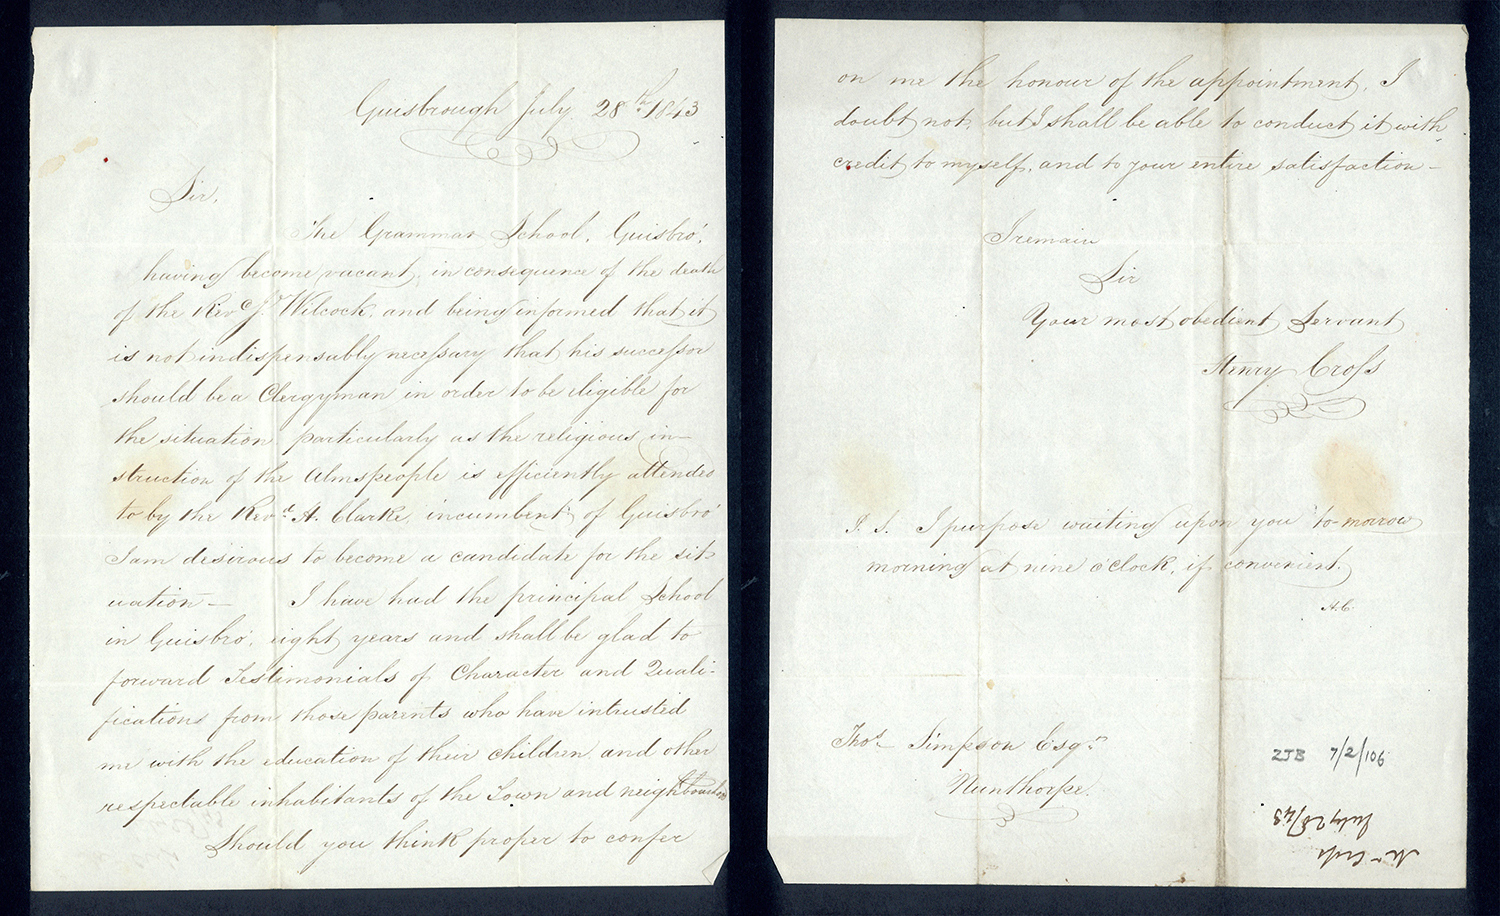 Guisbrough July 28th 1843
Sir,
The Grammar School, Guisbro',
having become vacant, in consequence of the death
of the Revd J. Wilcock, and being informed that it
is not indispensably necessary that his successor
should be a Clergyman in order to be eligible for
the situation particularly as the religious in-
struction of the Almspeople is efficiently attended
to by the Revd H. Clarke, incumbent of Guisbro'
I am desirous to become a candidate for the sit-
uation — I have had the principal School
in Guisbro', eight years and shall be glad to
forward Testimonials of Character and Quali-
fications from those parents who have intrusted
me with the education of their children and other
respectable inhabitants of the Town and neighbourhood
Should you think proper to confer
on me the honour of the appointment, I
doubt not, but I shall be able to conduct it with
credit to myself, and to your entire satisfaction —
I remain
Sir
Your most obedient Servant
Henry Cross
P.S. I purpose waiting upon you to-morrow
morning at nine o'Clock, if convenient.
H.C.
Thos Simpson Esqr
Nunthorpe.
ZJB 7/2/106
July 28/43
Mr Cross